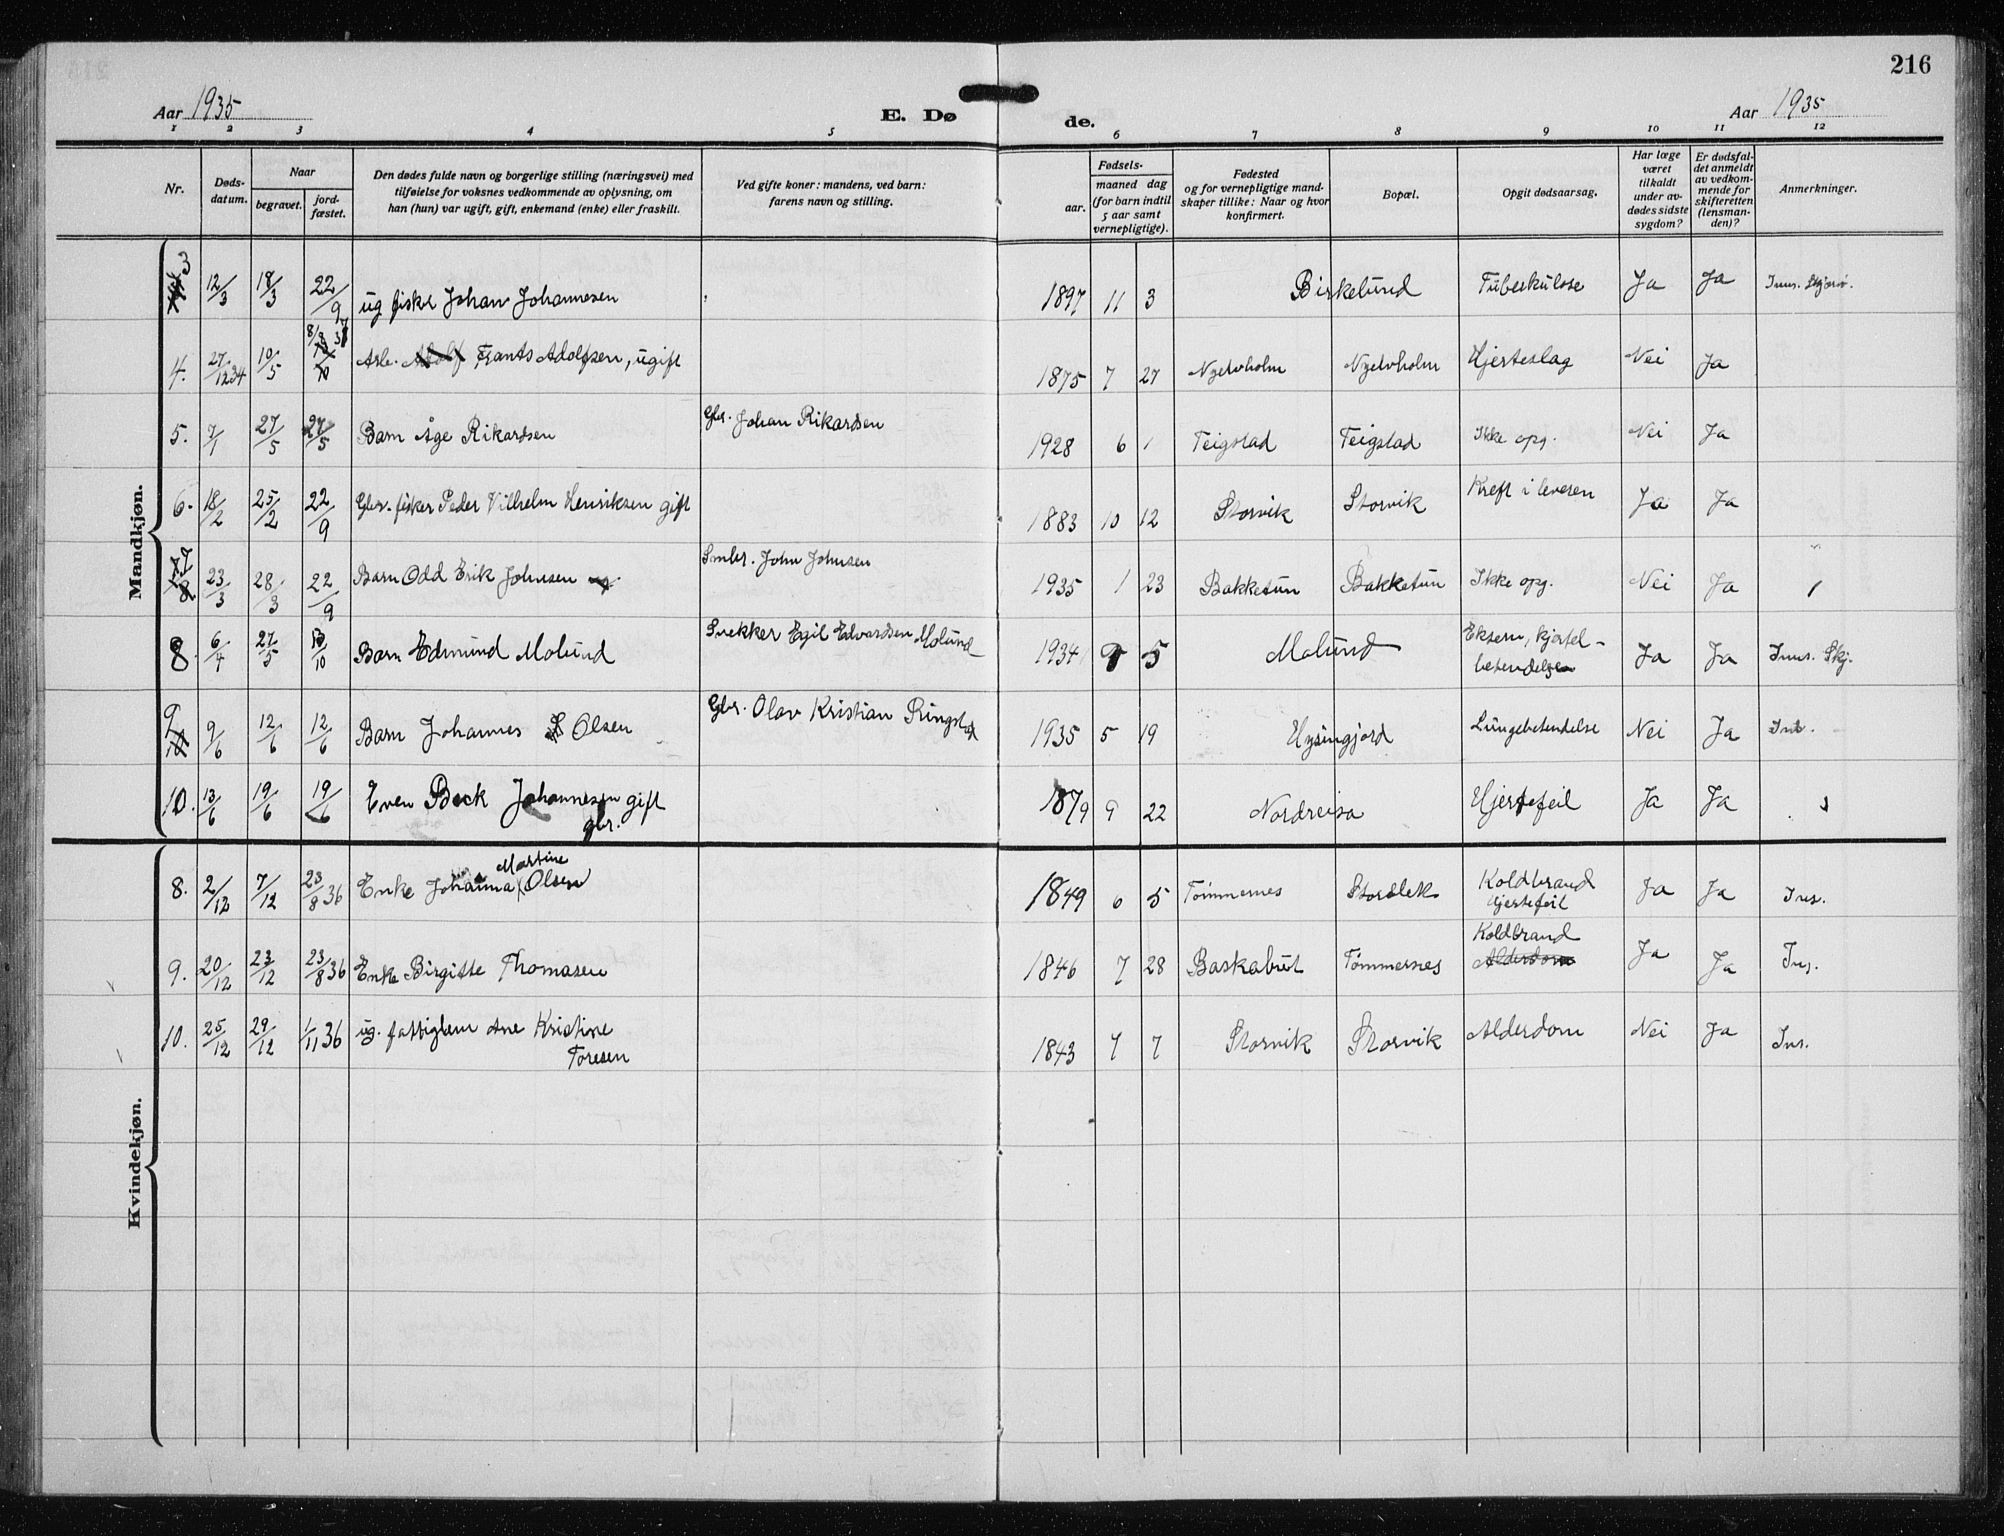 216
Aar 1935
E. Dø
de.
Aar 1935
1 2 3 4 5 6 7 8 9 10 11 12
Nr.
Døds-
datum.
Naar
begravet.
jord-
fæstet.
Den dødes fulde navn og borgerlige stilling (næringsvei) med
tilføielse for voksnes vedkommende av oplysning, om
han (hun) var ugift, gift, enkemand (enke) eller fraskilt.
Ved gifte koner: mandens, ved barn:
farens navn og stilling.
Fødsels-
aar.
maaned dag
(for barn indtil
5 aar samt
vernepligtige).
Fødested
og for vernepligtige mand-
skaper tillike: Naar og hvor
konfirmert.
Bopæl.
Opgit dødsaarsag.
Har læge
været
tilkaldt
under av-
dødes sidste
sygdom?
Er dødsfal-
det anmeldt
av vedkom-
mende for
skifteretten
(lensman-
den)?
Anmerkninger.
Mandkjøn.
3 12/3 18/3 22/9 ug fisker Johan Johannesen 1897 11 3 Birkelund Tuberkulose Ja Ja
4. 27/12 34 10/5 Arb. Frants Adolfsen, ugift 1875 7 27 Nyelvholm Nyelvholm Hjerteslag Nei Ja
5. 7/1 27/5 27/5 Barn Åge Rikardsen Gbr. Johan Rikardsen 1928 6 1 Teigstad Teigstad Ikke opg. Nei Ja
6. 18/2 25/2 22/9 Gbr. fisker Peder Vilhelm Henriksen gift 1883 10 12 Storvik Storvik Kreft i leveren Ja Ja
23/3 28/3 22/9 Barn Odd Erik Johnsen Smbr. John Johnsen 1935 1 23 Bakketun Bakketun Ikke opg. Nei Ja
8. 6/4 27/5 Barn Edmund Molund Snekker Egil Edvardsen Molund 1934 5 Molund Eksem, kjertel-
betendelse Ja Ja Inns. Skj.
9 9/6 12/6 12/6 Barn Johannes Olsen Gbr. Olav Kristian Ringstad 1935 5 19 Hysingjord Lungebetendelse Nei Ja
10. 13/6 19/6 19/6 Even Beck Johannesen gift
gbr. 1879 9 22 Nordreisa Hjertefeil Ja Ja
Kvindekjøn.
8. 2/12 7/12 23/8 36 Enke Johanna Martine Olsen 1849 6 5 Tømmernes Storslet Koldbrand
Hjertefeil Ja Ja Ins.
9. 20/12 23/12 23/8 36 Enke Birgitte Thomasen 1846 7 28 Baskabut Tømmernes Koldbrand
Alderdom Ja Ja Ins.
10. 25/12 29/12 1/11 36 ug. fattiglem Ane Kristine
Toresen 1843 7 7 Storvik Storvik Alderdom Nei Ja Ins.